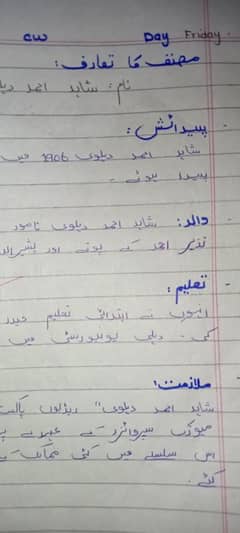 CW Day Friday
مصنف کا تعارف:
نام: شاہد احمد
پیدائش:
شاہد احمد دہلوی 1906 میں
پیدا ہوئے۔
والد: شاہد احمد دہلوی نامور
نذیر احمد کے پوتے اور بشیرالد
تعلیم:
انہوں نے ابتدائی تعلیم
کی۔ دہلی یونیورسٹی میں
ملازمت:
شاہد احمد دہلوی" ریڈیوں
میوزک سپروائزر کے عہدے
اس سلسلے میں کئی ممالک
گئے۔